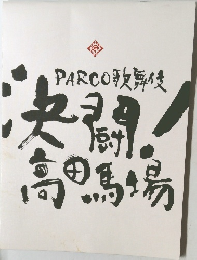 PARCO歌舞伎
決闘!
高田馬場